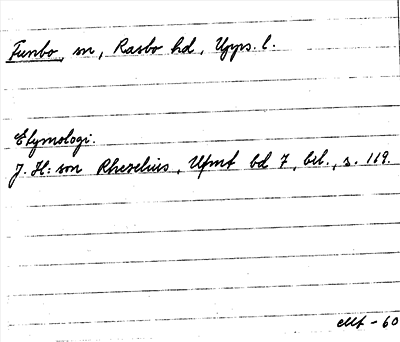 Funbo, sn, Rasbo hd, Upps. l.
Etymologi.
J. H:son Rhezelius, Ufmt bd 7, bil., s. 119.
cMt - 60